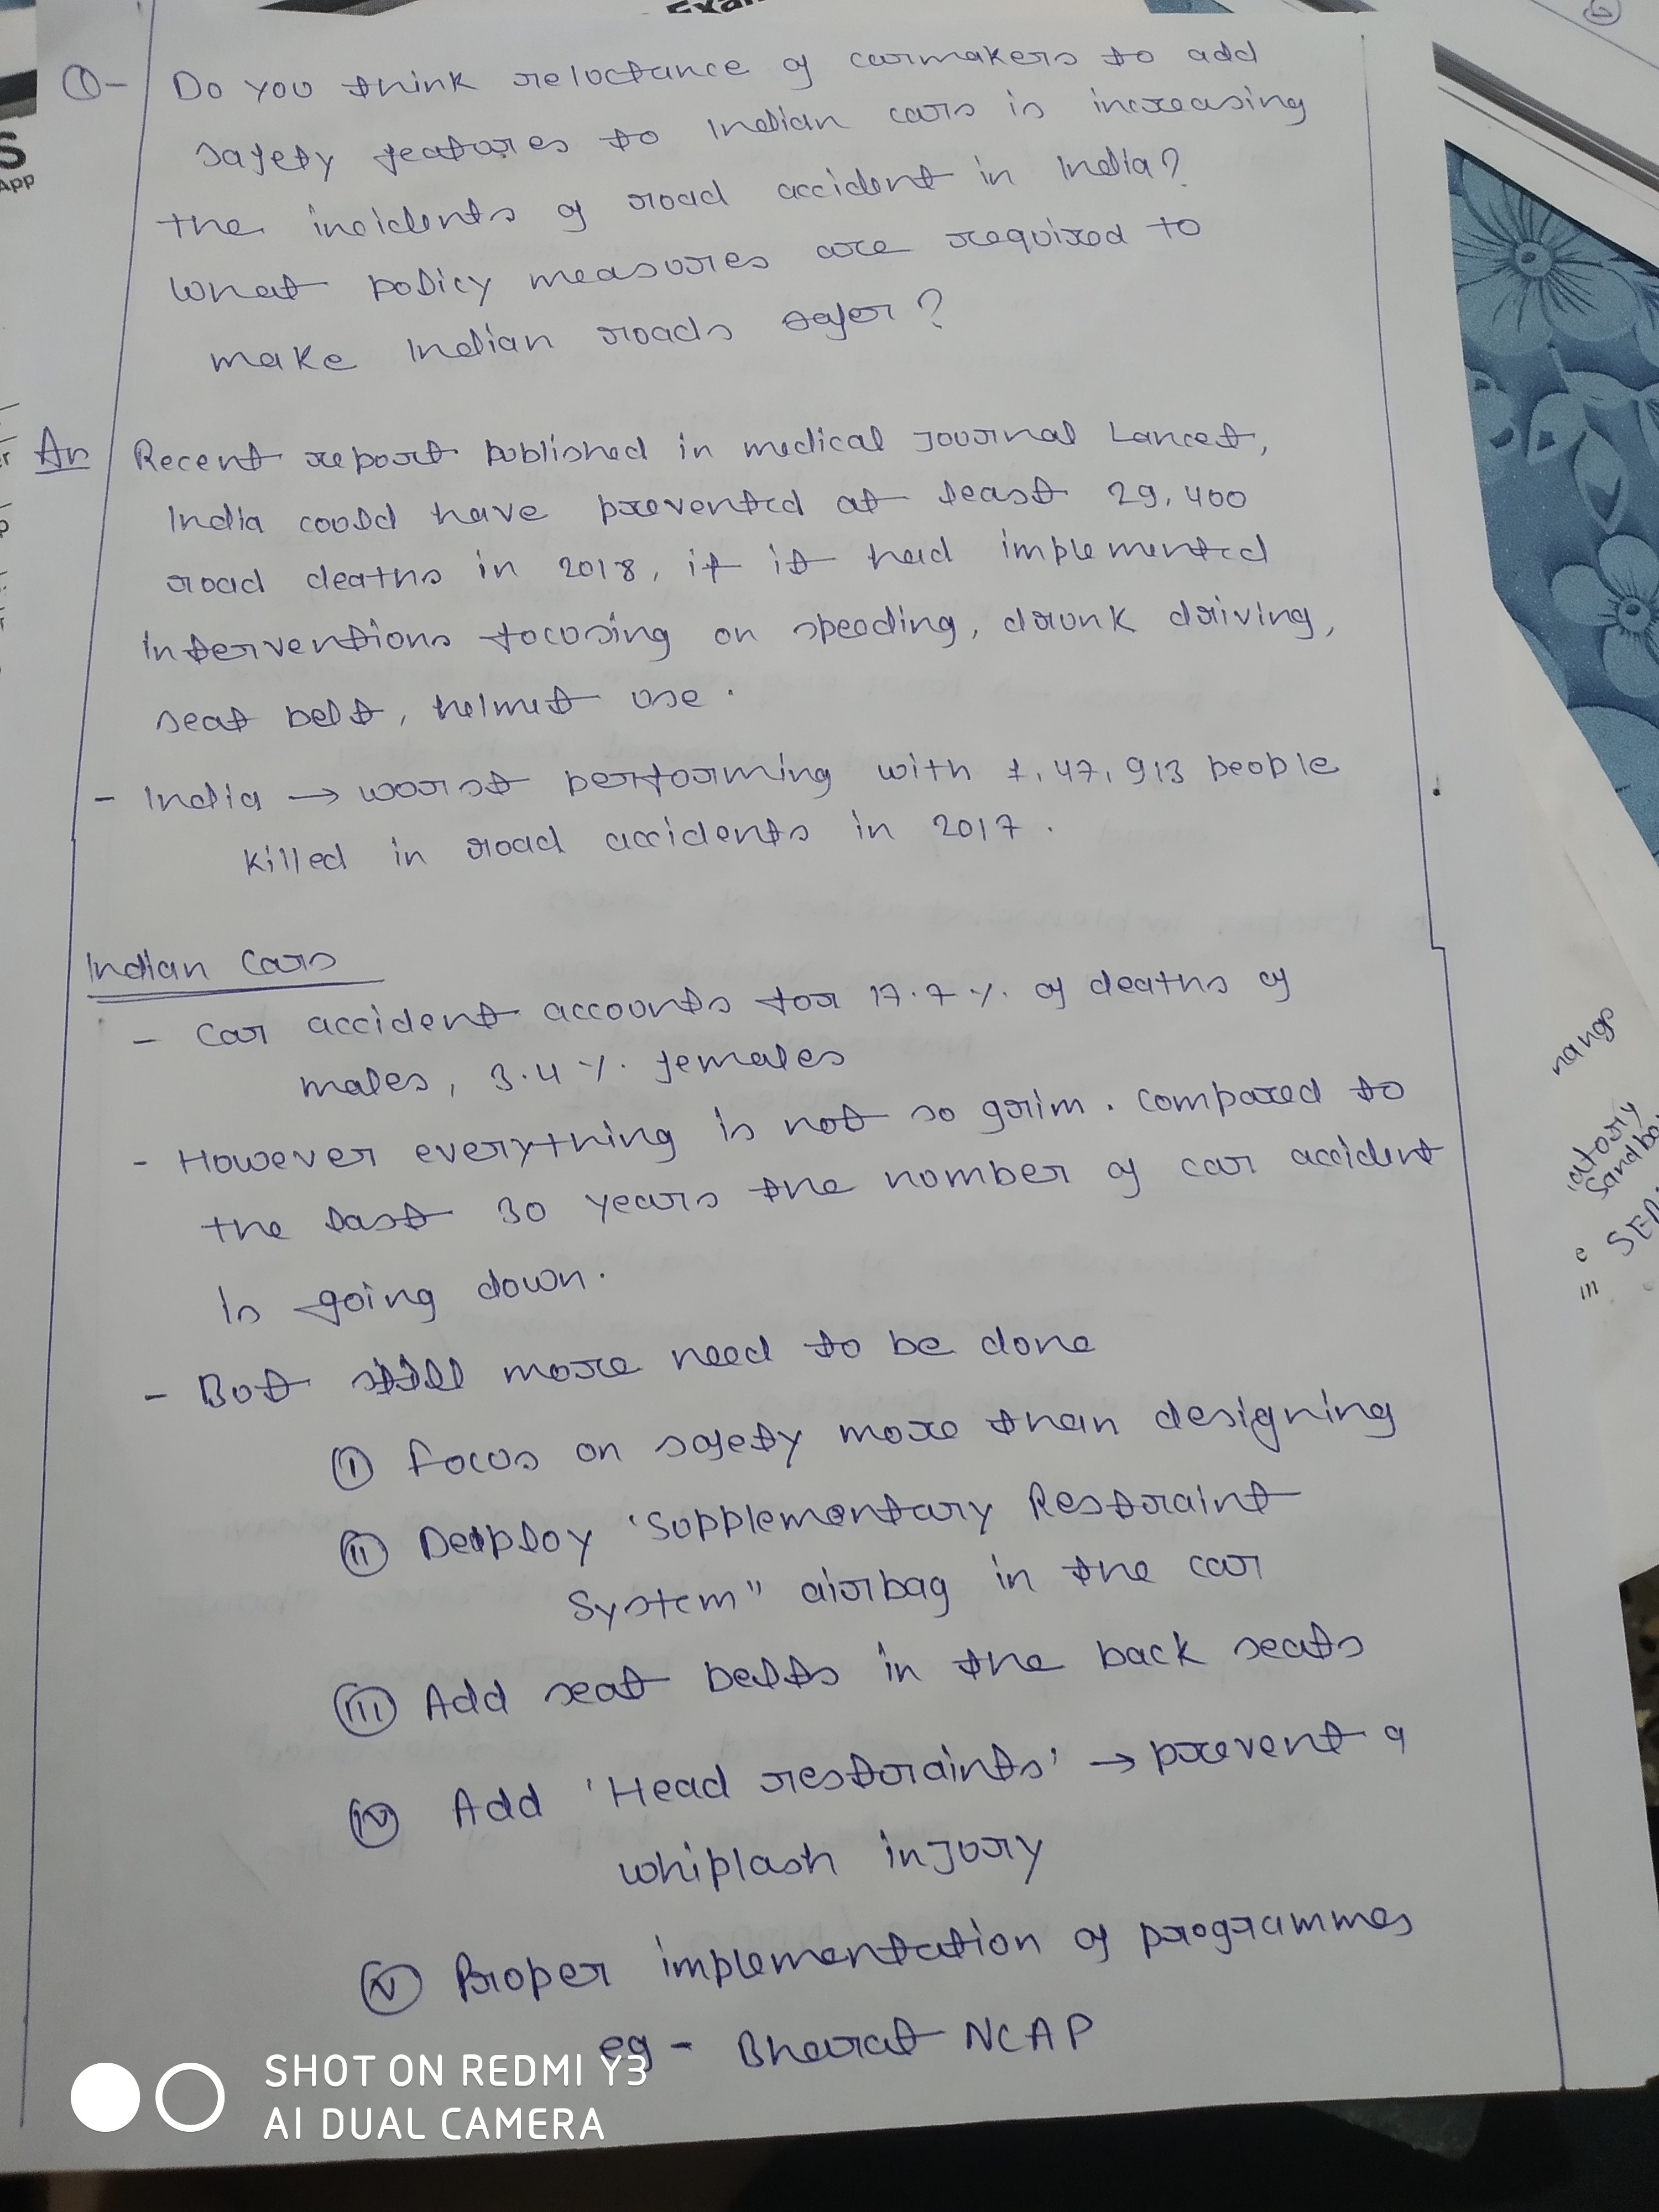 Q- Do you think reloctance of carmakers to add
safety features to Indian cars is increasing
the incidents of road accident in India?
What policy measures are required to
make Indian roads safer?
An Recent report published in medical journal Lancet,
India could have prevented at least 29,400
road deaths in 2018, if it had implemented
interventions focusing on speeding, drunk driving,
seat belt, helmet use.
- India → worst performing with 1,47,913 people
killed in road accidents in 2017.
Indian Cars
- Car accident accounts for 17.7% of deaths of
males, 3.4% females
- However everything is not so grim. Compared to
the last 30 years the number of car accident
is going down.
- But still more need to be done
(i) focus on safety more than designing
(ii) Deploy 'Supplementary Restraint
System" airbag in the car
(iii) Add seat belts in the back seats
(iv) Add 'Head restraints' → prevent a
whiplash injury
(v) Proper implementation of programmes
eg - Bharat NCAP
SHOT ON REDMI Y3
AI DUAL CAMERA
S
App
nange
Sandbo